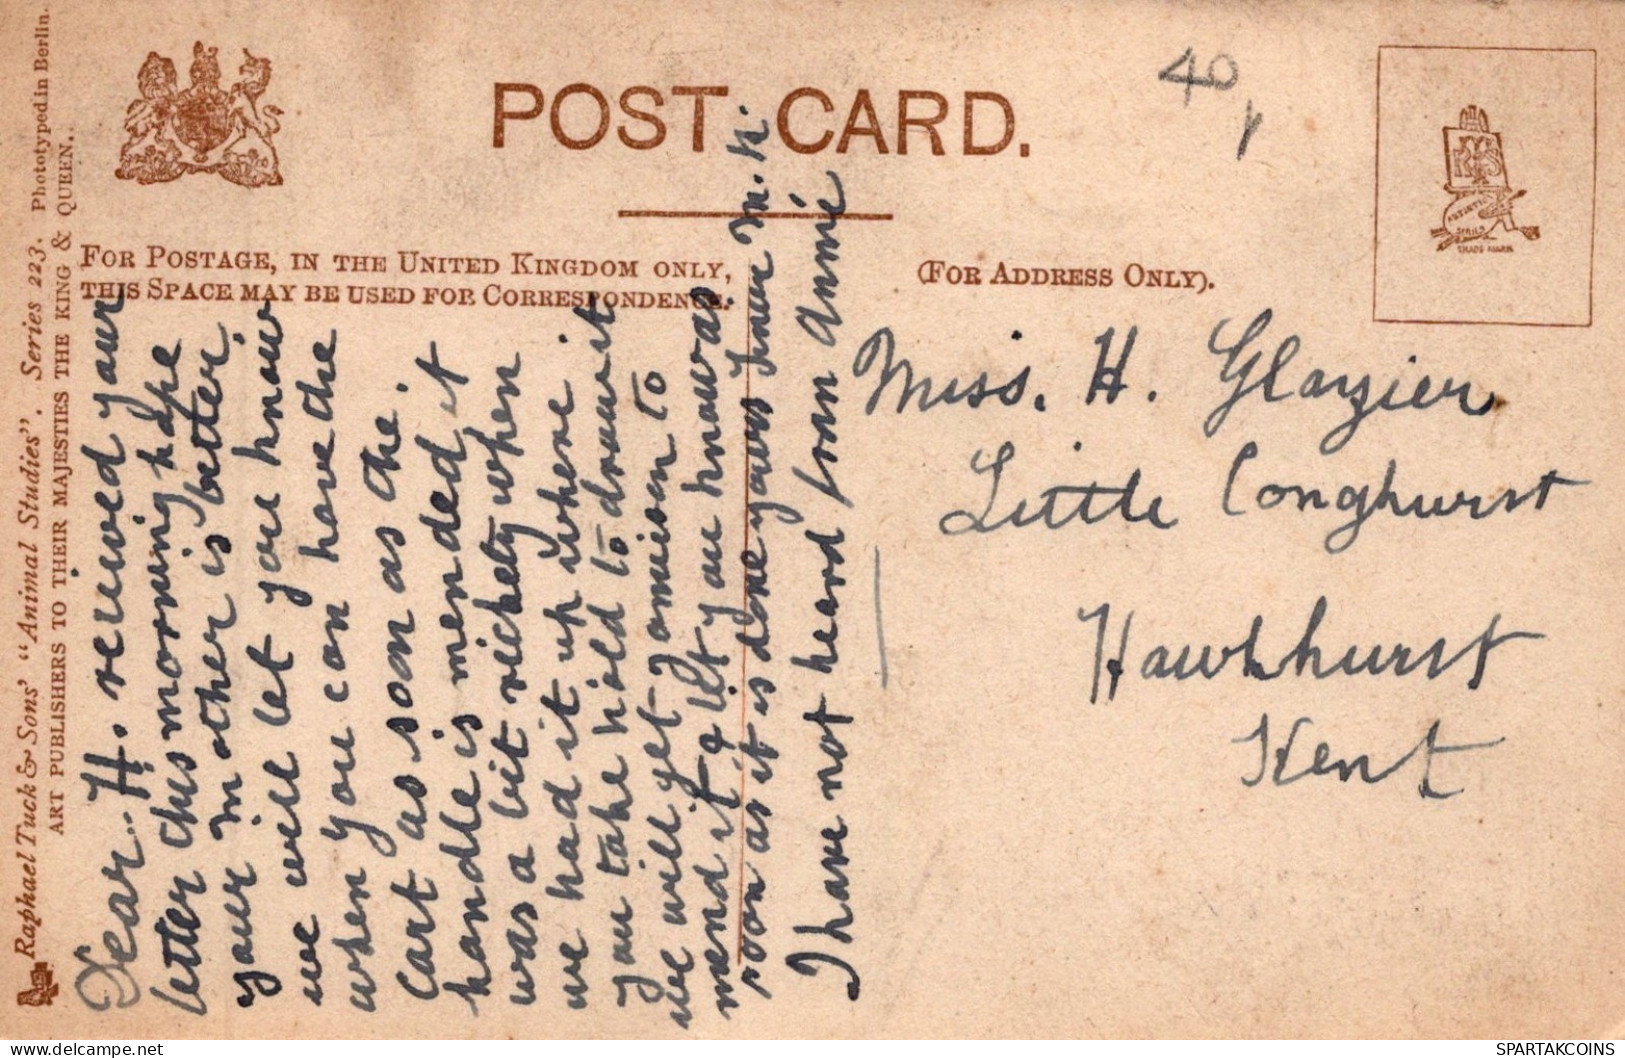 POST CARD.
40
FOR POSTAGE, IN THE UNITED KINGDOM ONLY,
THIS SPACE MAY BE USED FOR CORRESPONDENCE.
(FOR ADDRESS ONLY).
TRADE MARK
Raphael Tuck & Sons' "Animal Studies". Series 223. Phototyped in Berlin.
ART PUBLISHERS TO THEIR MAJESTIES THE KING & QUEEN.
Dear. H. received your
letter this morning hope
your mother is better
we will let you know
when you can have the
cart as soon as the.
handle is mended it
was a bit rickety when
we had it up where
you take hold to draw it
we will get to
mend it & let you know as
soon as it is done yours M. H.
I have not heard from Annie
Miss. H. Glazier
Little Conghurst
Hawkhurst
Kent
SPARTAKCOINS
www.delcampe.net